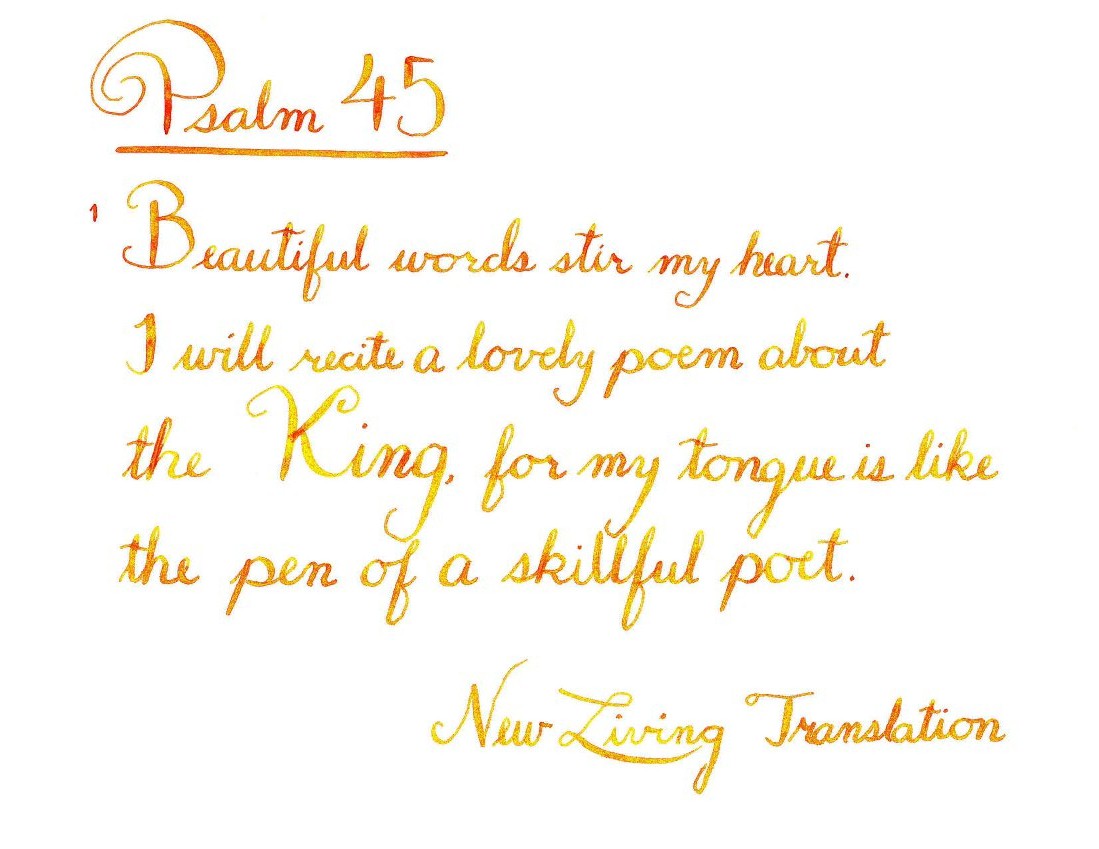 Psalm 45
1 Beautiful words stir my heart.
I will recite a lovely poem about
the King, for my tongue is like
the pen of a skillful poet.
New Living Translation